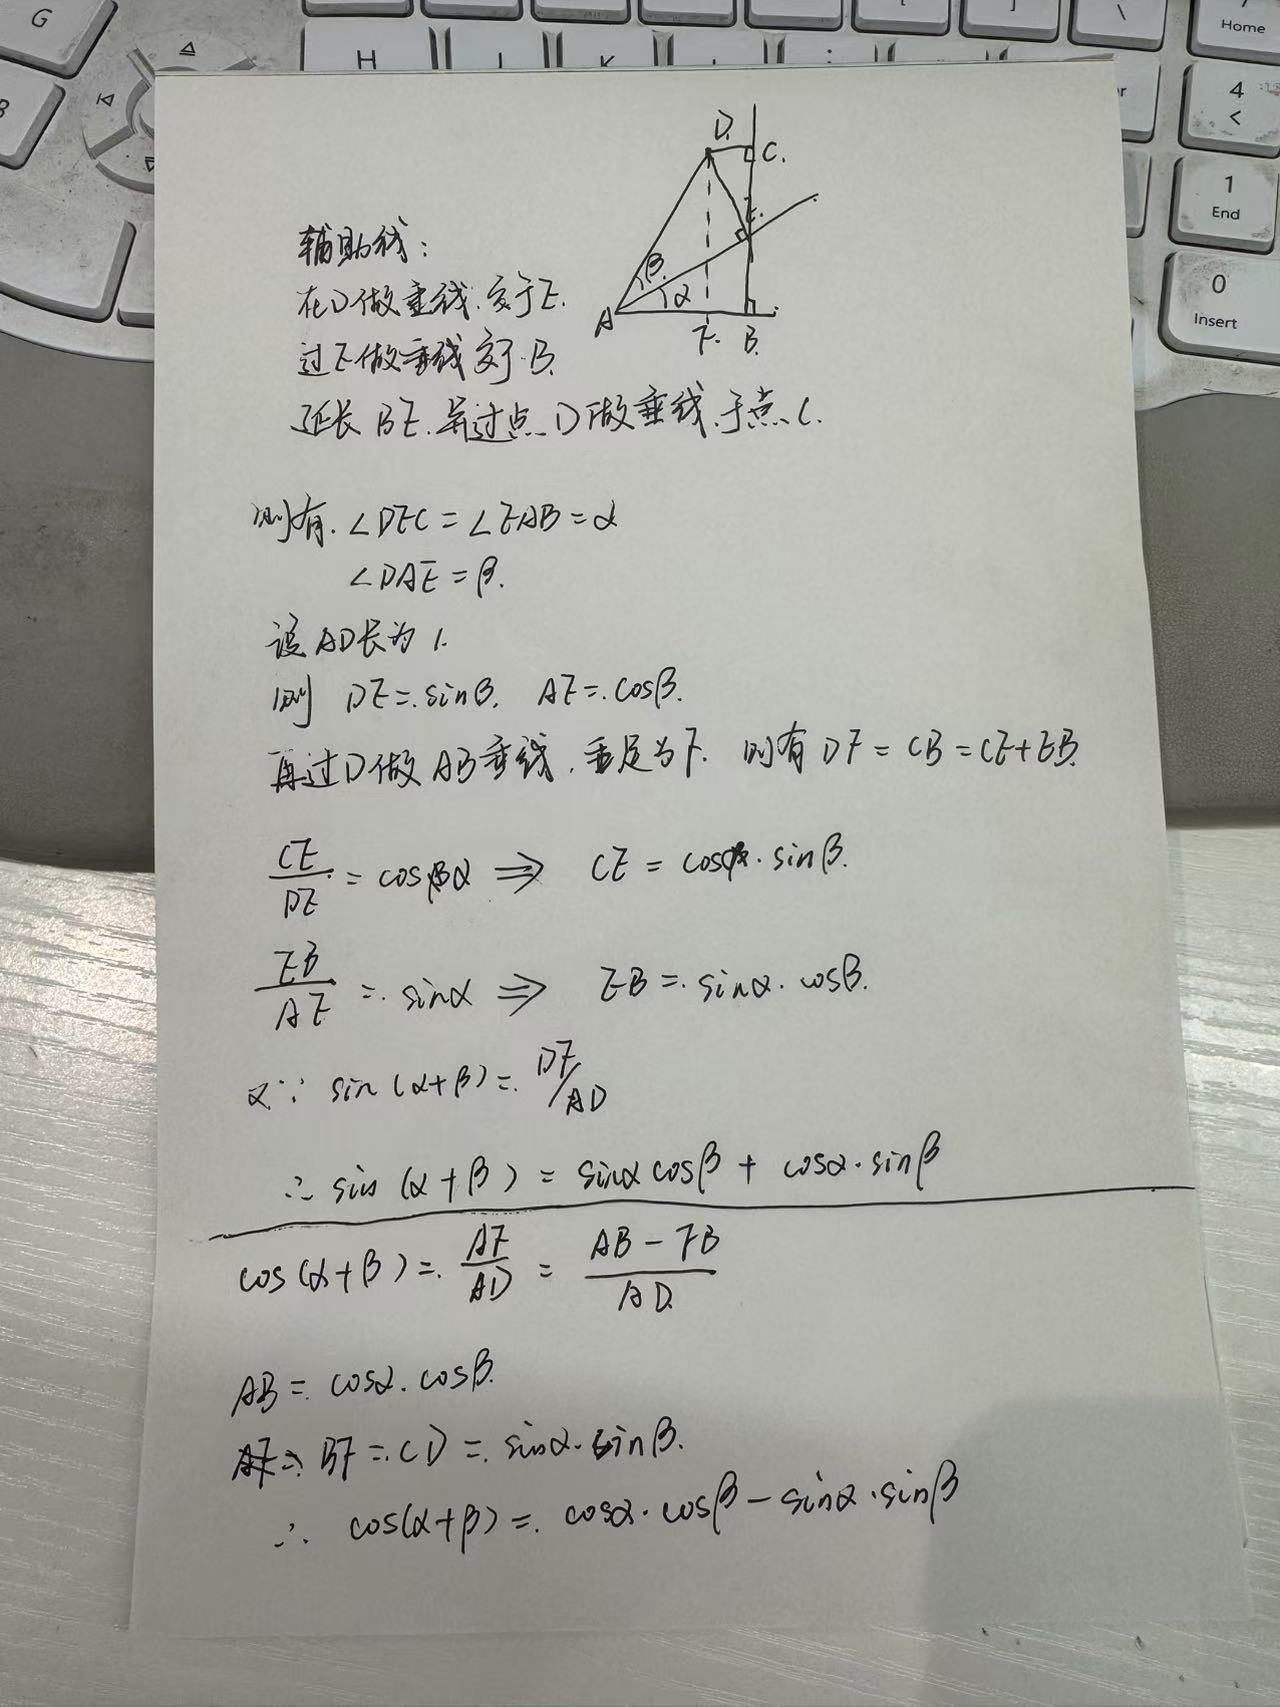 G
H
J
K
L
:
;
]
\
Home
4
<
1
End
0
Insert
D.
C.
E.
β
α
A
F.
B.
辅助线：
在D做垂线.交于E.
过E做垂线交于.B.
延长BE.并过点D做垂线.于点C.
则有.∠DEC=∠EAB=α
∠DAE=β.
设AD长为1.
则 DE=sinβ. AE=cosβ.
再过D做AB垂线.垂足为F. 则有DF=CB=CE+EB.
CE/DE = cosα ⇒ CE = cosα·sinβ.
EB/AE = sinα ⇒ EB = sinα·cosβ.
又∵ sin(α+β)=DF/AD
∴ sin(α+β) = sinα cosβ + cosα·sinβ
cos(α+β)=AF/AD = AB-FB/AD.
AB = cosα.cosβ.
BF=CD=sinα·sinβ.
∴ cos(α+β)=cosα·cosβ-sinα·sinβ